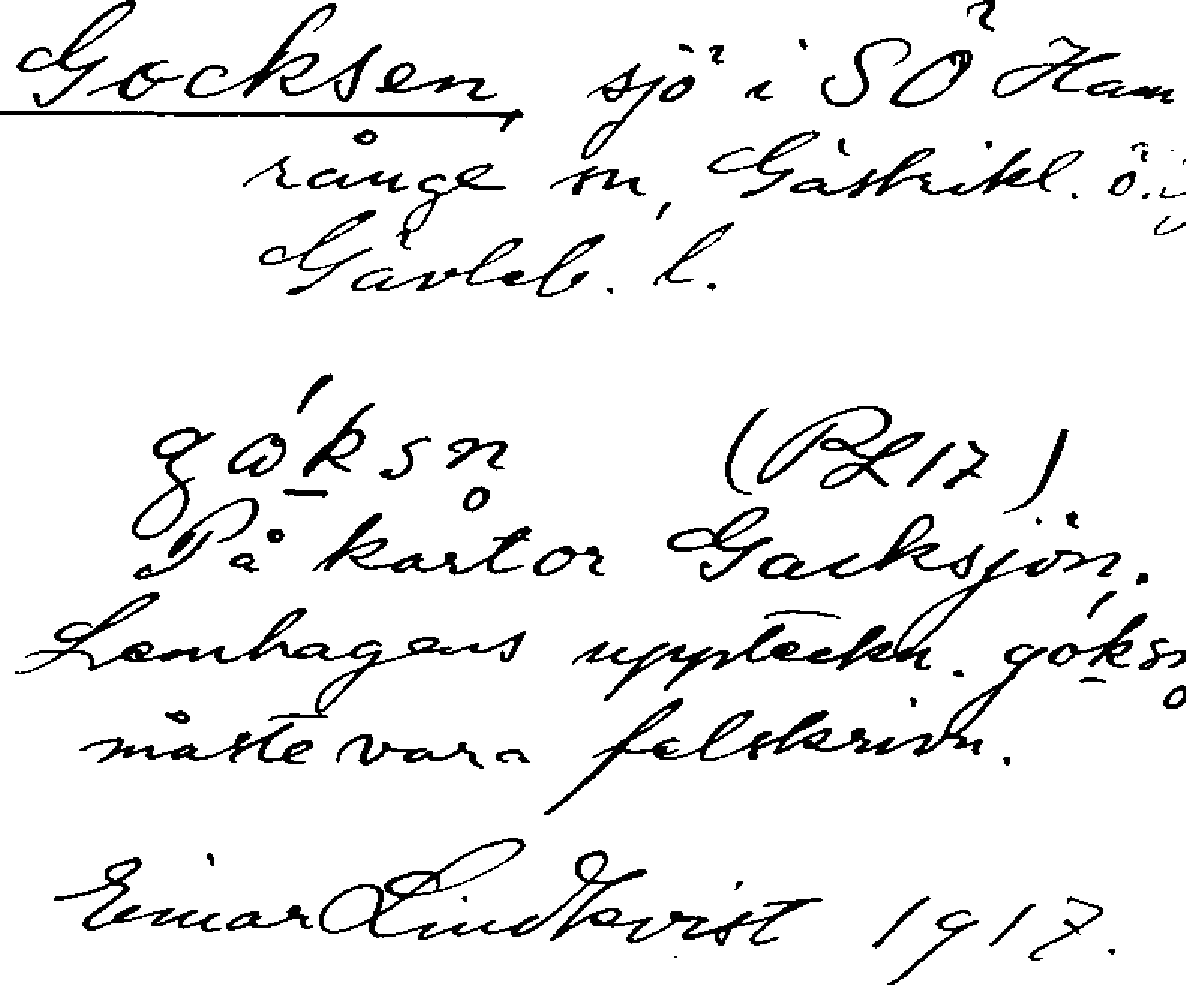 Gocksen, sjö i SÖ Ham
rånge sn, Gästrikl. ö.
Gävleb. l.
gώk̲sn̥ (RL 17)
På kartor Gacksjön.
Lömhagens uppteckn. gók̲sn̥
måste vara felskrivn.
Einar Lindkvist 1917.